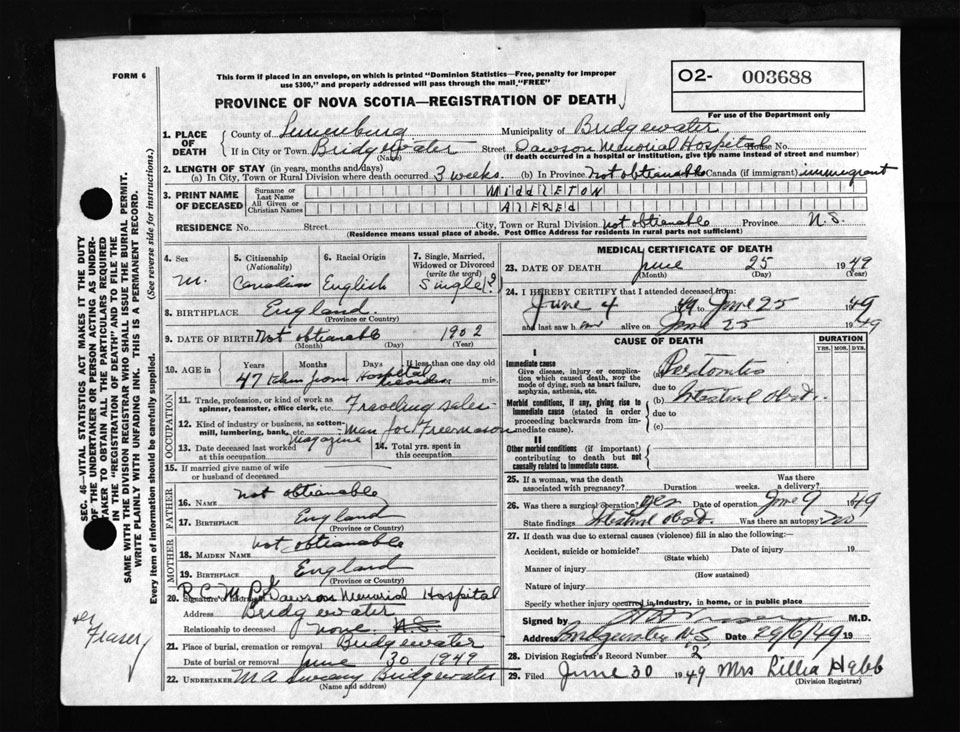 FORM 6
This form if placed in an envelope, on which is printed "Dominion Statistics—Free, penalty for improper
use $300," and properly addressed will pass through the mail "FREE"
O2- 003688
For use of the Department only
PROVINCE OF NOVA SCOTIA—REGISTRATION OF DEATH
1. PLACE OF DEATH
County of Lunenburg Municipality of Bridgewater
If in City or Town Bridgewater Street Dawson Memorial Hospital House No.
(Name) (If death occurred in a hospital or institution, give the name instead of street and number)
2. LENGTH OF STAY (in years, months and days)
(a) In City, Town or Rural Division where death occurred 3 weeks. (b) In Province Not obtianable Canada (if immigrant) immigrant
3. PRINT NAME OF DECEASED
Surname or Last Name MIDDLETON
All Given or Christian Names ALFRED
RESIDENCE No. Street City, Town or Rural Division not obtianable Province N.S.
(Residence means usual place of abode. Post Office Address for residents in rural parts not sufficient)
4. Sex M.
5. Citizenship (Nationality) Canadian
6. Racial Origin English
7. Single, Married, Widowed or Divorced (write the word) Single (?)
8. BIRTHPLACE England
(Province or Country)
9. DATE OF BIRTH Not obtianable 1902
(Month) (Day) (Year)
10. AGE in Years Months Days If less than one day old
47 taken from Hospital min.
11. Trade, profession, or kind of work as spinner, teamster, office clerk, etc. Traveling sales-
12. Kind of industry or business, as cotton-mill, lumbering, bank, etc. man for Freemason
13. Date deceased last worked at this occupation magazine
14. Total yrs. spent in this occupation
OCCUPATION
15. If married give name of wife or husband of deceased
FATHER
16. NAME not obtianable
17. BIRTHPLACE England
(Province or Country)
MOTHER
18. MAIDEN NAME not obtianable
19. BIRTHPLACE England
(Province or Country)
20. Signature of R.C.M.P. Dawson Memorial Hospital
Address Bridgewater
Relationship to deceased none N.S.
21. Place of burial, cremation or removal Bridgewater
Date of burial or removal June 30 1949
22. UNDERTAKER M A Bridgewater
(Name and address)
MEDICAL CERTIFICATE OF DEATH
23. DATE OF DEATH June 25 1949
(Month) (Day) (Year)
24. I HEREBY CERTIFY that I attended deceased from
June 4 49 to June 25 1949
and last saw him alive on June 25 1949
CAUSE OF DEATH
DURATION
YRS. MOS. DYS.
I
Immediate cause
Give disease, injury or complication which caused death, not the mode of dying, such as heart failure, asphyxia, asthenia, etc.
(a) Peritonitis
due to
Morbid conditions, if any, giving rise to immediate cause (stated in order proceeding backwards from immediate cause).
(b) Intestinal Obst.
due to
(c)
II
Other morbid conditions (if important) contributing to death but not causally related to immediate cause.
25. If a woman, was the death associated with pregnancy? Duration weeks. Was there a delivery?
26. Was there a surgical operation? yes Date of operation June 9 1949
State findings Intestinal Obst. Was there an autopsy? no
27. If death was due to external causes (violence) fill in also the following:
Accident, suicide or homicide? Date of injury 19
(State which)
Manner of injury
(How sustained)
Nature of injury
Specify whether injury occurred in industry, in home, or in public place
Signed by M.D.
Address Bridgewater N.S. Date 29/6/49 19
28. Division Registrar's Record Number 2
29. Filed June 30 1949 Mrs Lillia Hebb
(Division Registrar)
SEC. 46—VITAL STATISTICS ACT MAKES IT THE DUTY
OF THE UNDERTAKER OR PERSON ACTING AS UNDERTAKER TO OBTAIN ALL THE PARTICULARS REQUIRED
IN THE "REGISTRATION OF DEATH" AND TO FILE THE
SAME WITH THE DIVISION REGISTRAR WHO SHALL ISSUE THE BURIAL PERMIT.
WRITE PLAINLY WITH UNFADING INK. THIS IS A PERMANENT RECORD.
Every item of information should be carefully supplied. (See reverse side for instructions.)
Fraser